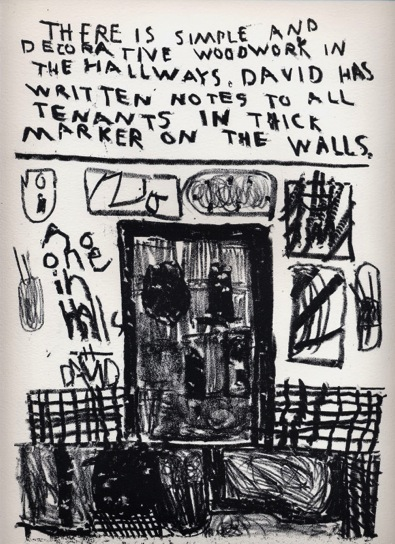 THERE IS SIMPLE AND
DECORATIVE WOODWORK IN
THE HALLWAYS. DAVID HAS
WRITTEN NOTES TO ALL
TENANTS IN THICK
MARKER ON THE WALLS.
one
in
Halls
DAVID